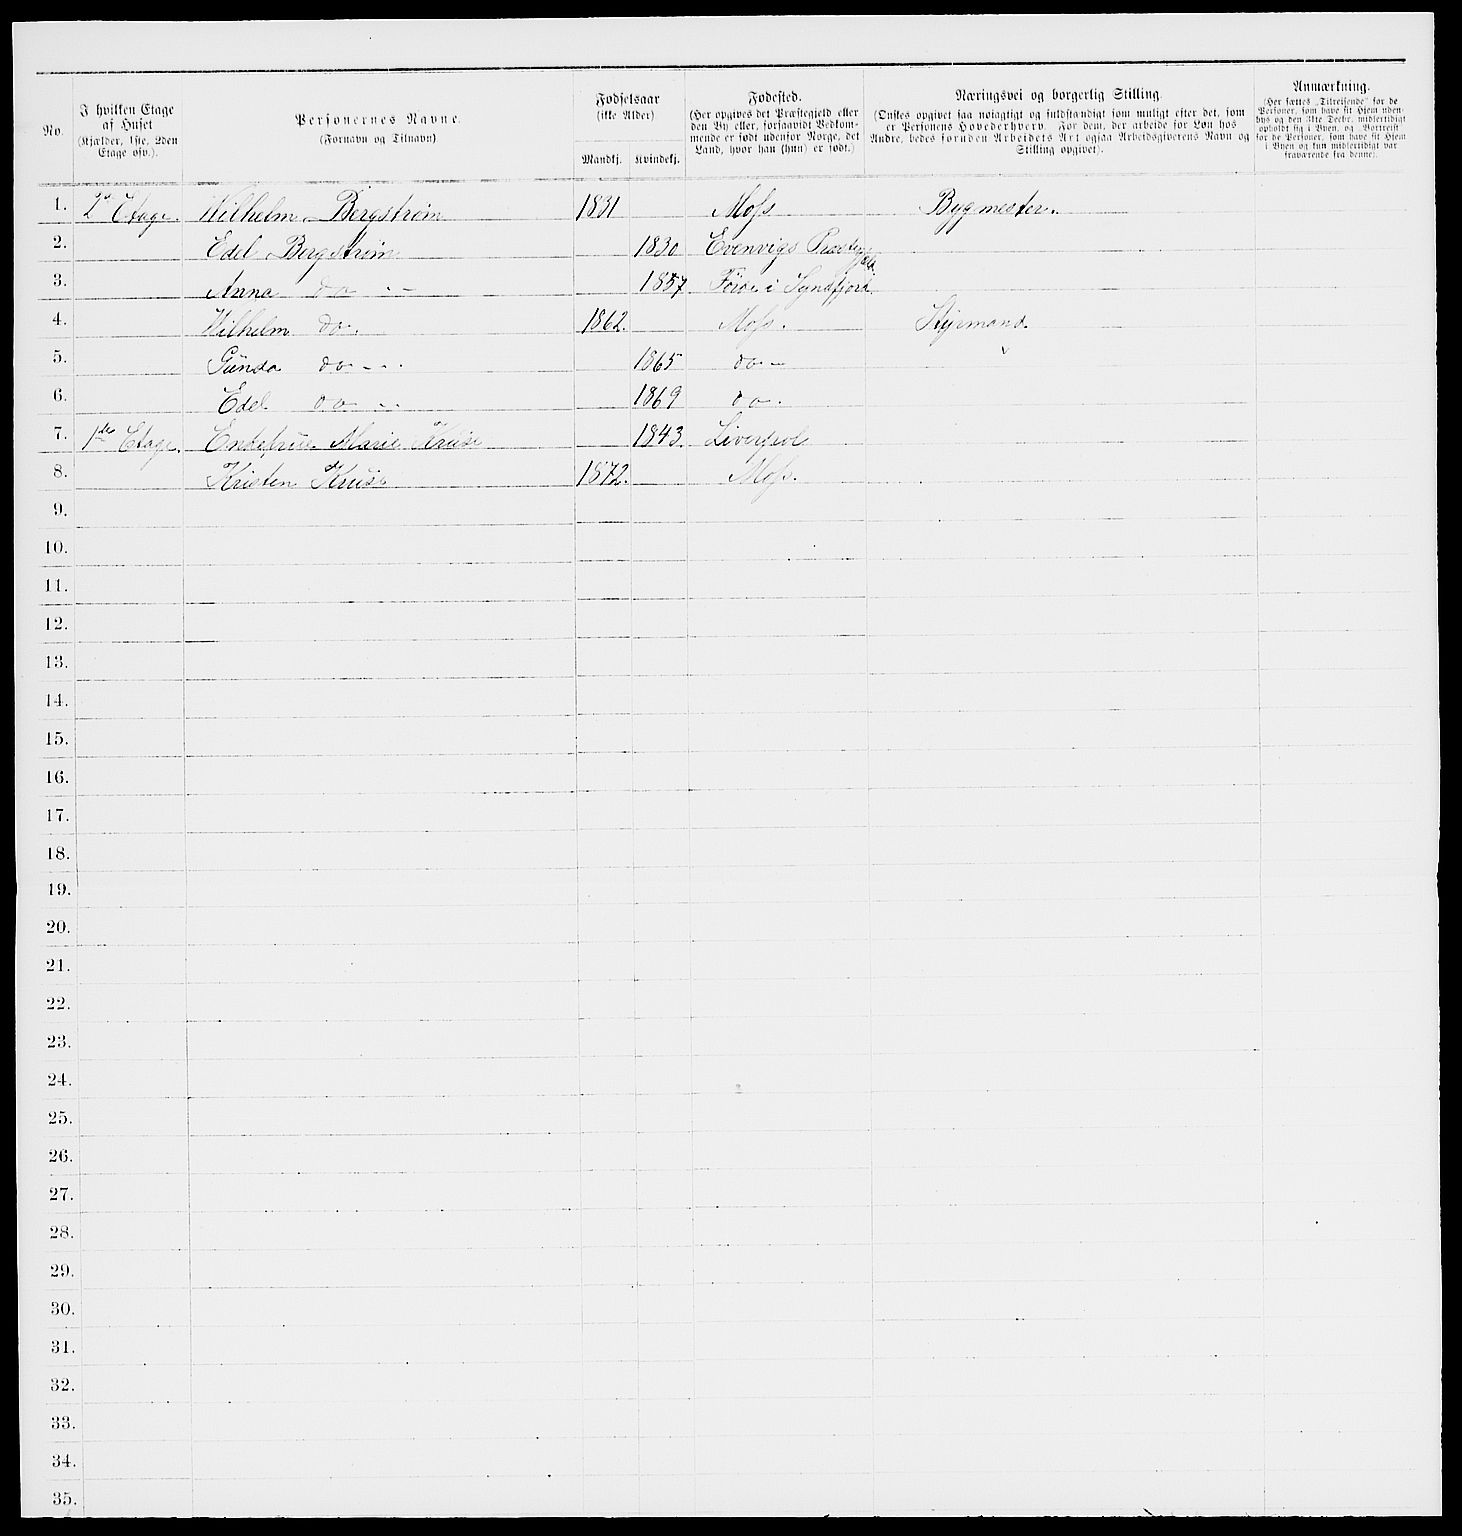 No.
I hvilken Etage
af Huset
(Kjælder, 1ste, 2den
Etage osv.).
Personernes Navne.
(Fornavn og Tilnavn)
Fødselsaar
(ikke Alder)
Mandkj. Kvindekj.
Fødested.
(Her opgives det Præstegjeld eller
den By eller, forsaavidt Vedkom-
mende er født udenfor Norge, det
Land, hvor han (hun) er født.)
Næringsvei og borgerlig Stilling.
(Ønskes opgivet saa nøiagtigt og fuldstændigt som muligt efter det, som
er Personens Hovederhverv. For dem, der arbeide for Løn hos
Andre, bedes foruden Arbeidets Art ogsaa Arbeidsgiverens Navn og
Stilling opgivet).
Anmærkning.
(Her sættes „Tilreisende" for de
Personer, som have sit Hjem uden-
bys og den 31te Decbr. midlertidigt
opholdt sig i Byen, og „Bortreist"
for de Personer, som have sit Hjem
i Byen og kun midlertidigt var
fraværende fra denne).
1. 2den Etage. Wilhelm Bergstrøm 1831 Moss Bygmester.
2. Edel Bergstrøm 1830 Evenvigs Præste
gjæld.
3. Anna do - - 1857 Førde i Syndfjord
4. Wilhelm do. 1862. Moss. Styrmand.
5. Gúnda do - - . 1865 do -
6. Edel do - .. 1869 do.
7. 1ste Etage. Enkefrue Marie Krúse 1843. Liverpol
8. Kristen Krúse 1872. Moss.
9.
10.
11.
12.
13.
14.
15.
16.
17.
18.
19.
20.
21.
22.
23.
24.
25.
26.
27.
28.
29.
30.
31.
32.
33.
34.
35.